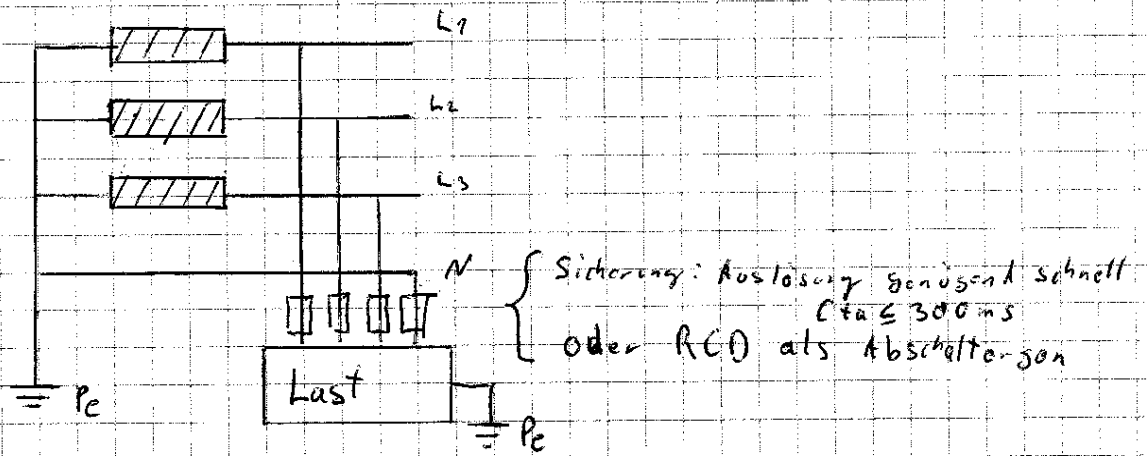 L1
L2
L3
N
Sicherung: Auslösung genügend schnell
(ta ≤ 300 ms
oder RCD als Abschaltorgan
Last
Pe
Pe